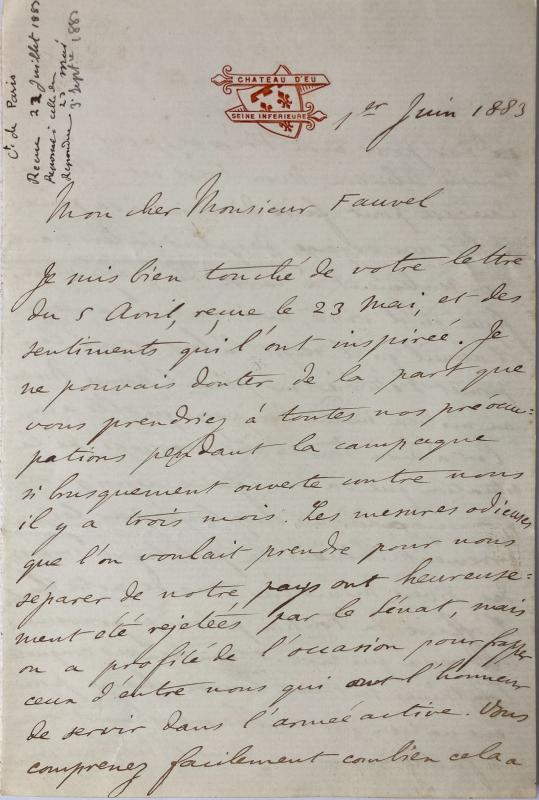 Ct. de Paris
Recue 22 Juillet 1883
Réponse à celle du
23 mai
Répondue 3 Septre 1883
CHATEAU D'EU
SEINE INFERIEURE
1er Juin 1883
Mon cher Monsieur Fauvel
Je suis bien touché de votre lettre
du 5 Avril, reçue le 23 Mai, et des
sentiments qui l'ont inspirée. Je
ne pouvais douter de la part que
vous prendriez à toutes nos préoccu=
pations pendant la campagne
si brusquement ouverte contre nous
il y a trois mois. Les mesures odieuses
que l'on voulait prendre pour nous
séparer de notre pays ont heureuse=
ment été rejetées par le Sénat, mais
on a profité de l'occasion pour frapper
ceux d'entre nous qui ont l'honneur
de servir dans l'armée active. Vous
comprenez facilement combien cela a